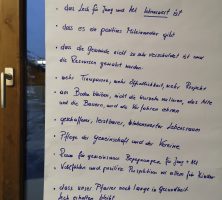 - das Lech für Jung und Alt lebenswert ist
- dass es ein positives Miteinander gibt
- dass die Gemeinde nicht so sehr verschuldet ist und
die Ressourcen genutzt werden.
- mehr Transparenz, mehr Öffentlichkeit, mehr Projekte
- am Boden bleiben, nicht die Wurzeln verlieren, das Alte
und die Bauern, und die Vorfahren ehren
- geschaffener, leistbarer, Lebensraum
- Pflege der Gemeinschaft und der Vereine
- Raum für gemeinsame Begegnungen, für Jung + Alt
- und positive Perspektive vor allem für Kinder
- dass unser Pfarrer noch lange in Gesundheit
Lech erhalten bleibt